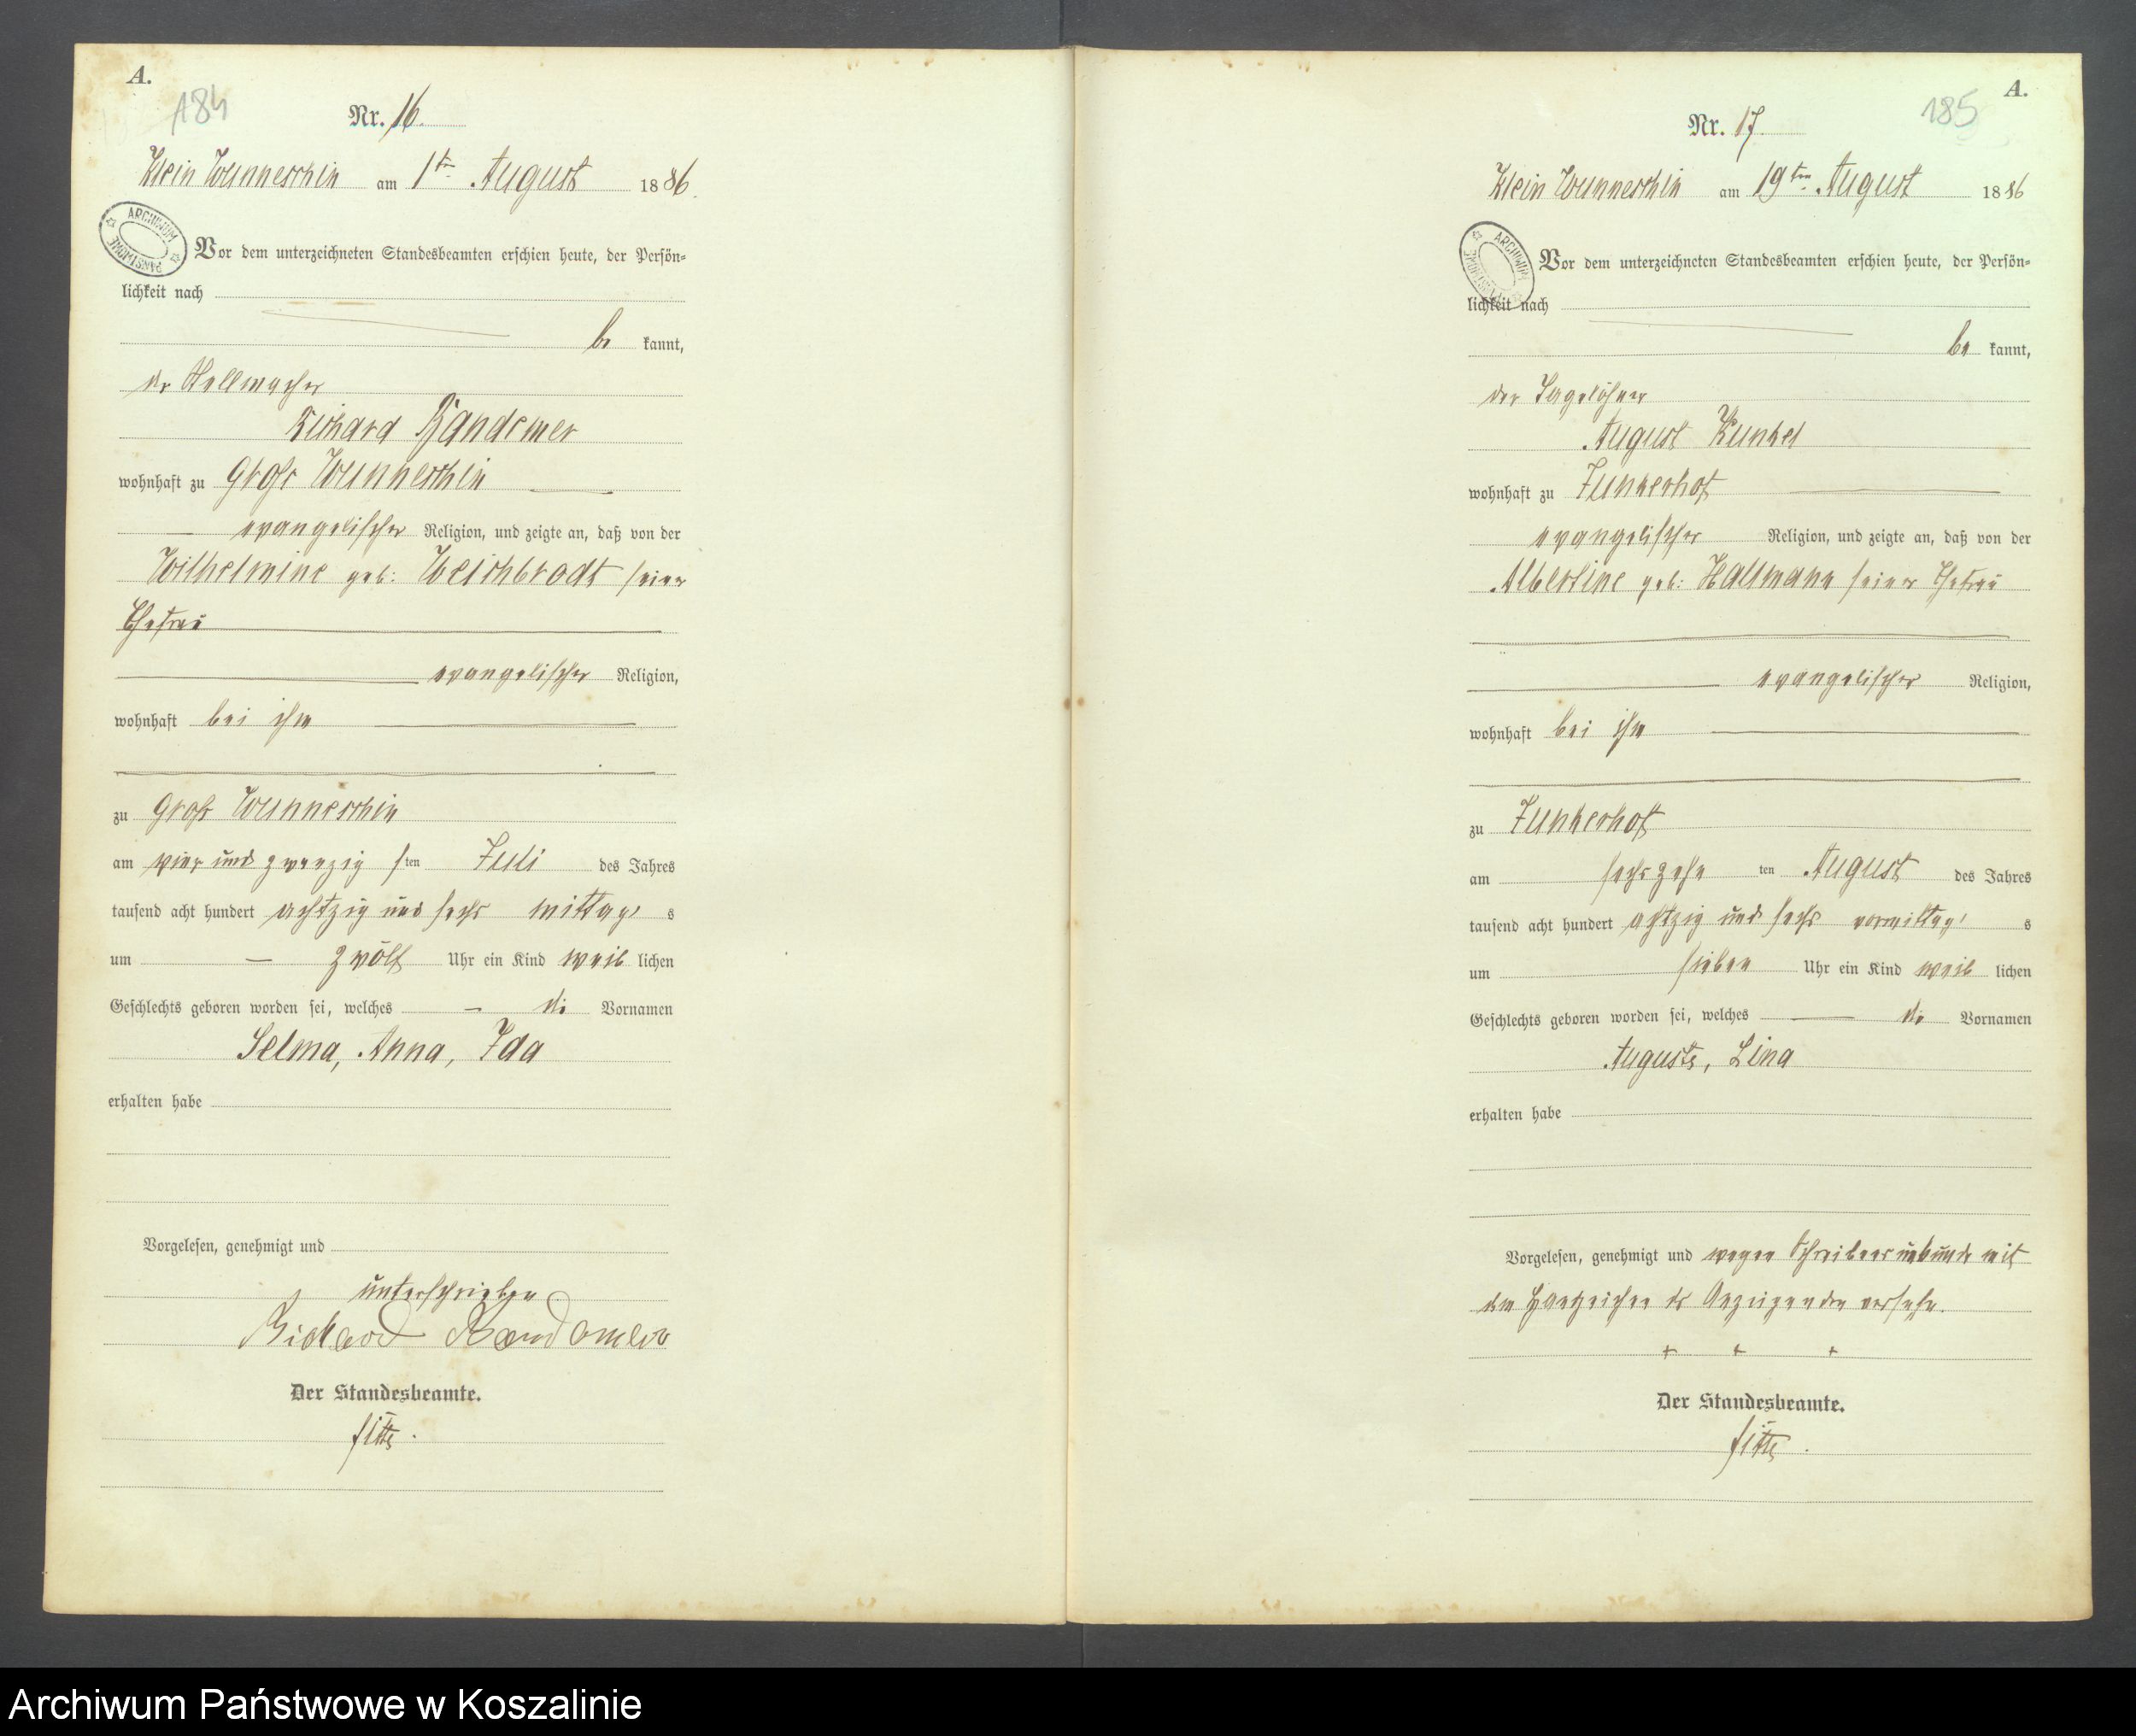 A.
184
Nr. 16.
Klein Wunneschin am 1ten August 1886.
ARCHIWUM PAŃSTWOWE
Vor dem unterzeichneten Standesbeamten erschien heute, der Persön-
lichkeit nach
be kannt,
der Stellmacher
Richard Bandemer
wohnhaft zu Groß Wunneschin
evangelischer Religion, und zeigte an, daß von der
Wilhelmine geb: Weichbrodt seiner
Ehefrau
evangelischer Religion,
wohnhaft bei ihm
zu Groß Wunneschin
am vier und zwanzig sten Juli des Jahres
tausend acht hundert achtzig und sechs mittag s
um zwölf Uhr ein Kind weib lichen
Geschlechts geboren worden sei, welches die Vornamen
Selma, Anna, Ida
erhalten habe
Vorgelesen, genehmigt und
unterschrieben
Richard Bandemer
Der Standesbeamte.
A.
185
Nr. 17.
Klein Wunneschin am 19ten August 1886
ARCHIWUM PAŃSTWOWE
Vor dem unterzeichneten Standesbeamten erschien heute, der Persön-
lichkeit nach
be kannt,
der Tagelöhner
August Kunkel
wohnhaft zu Junkerhof
evangelischer Religion, und zeigte an, daß von der
Albertine geb: Hallmann seiner Ehefrau
evangelischer Religion,
wohnhaft bei ihm
zu Junkerhof
am sechszehn ten August des Jahres
tausend acht hundert achtzig und sechs vormittag s
um sieben Uhr ein Kind weib lichen
Geschlechts geboren worden sei, welches die Vornamen
Auguste, Lina
erhalten habe
Vorgelesen, genehmigt und wegen Schreibensunkunde mit
dem Handzeichen des Anzeigenden versehn.
+ + +
Der Standesbeamte.
Archiwum Państwowe w Koszalinie